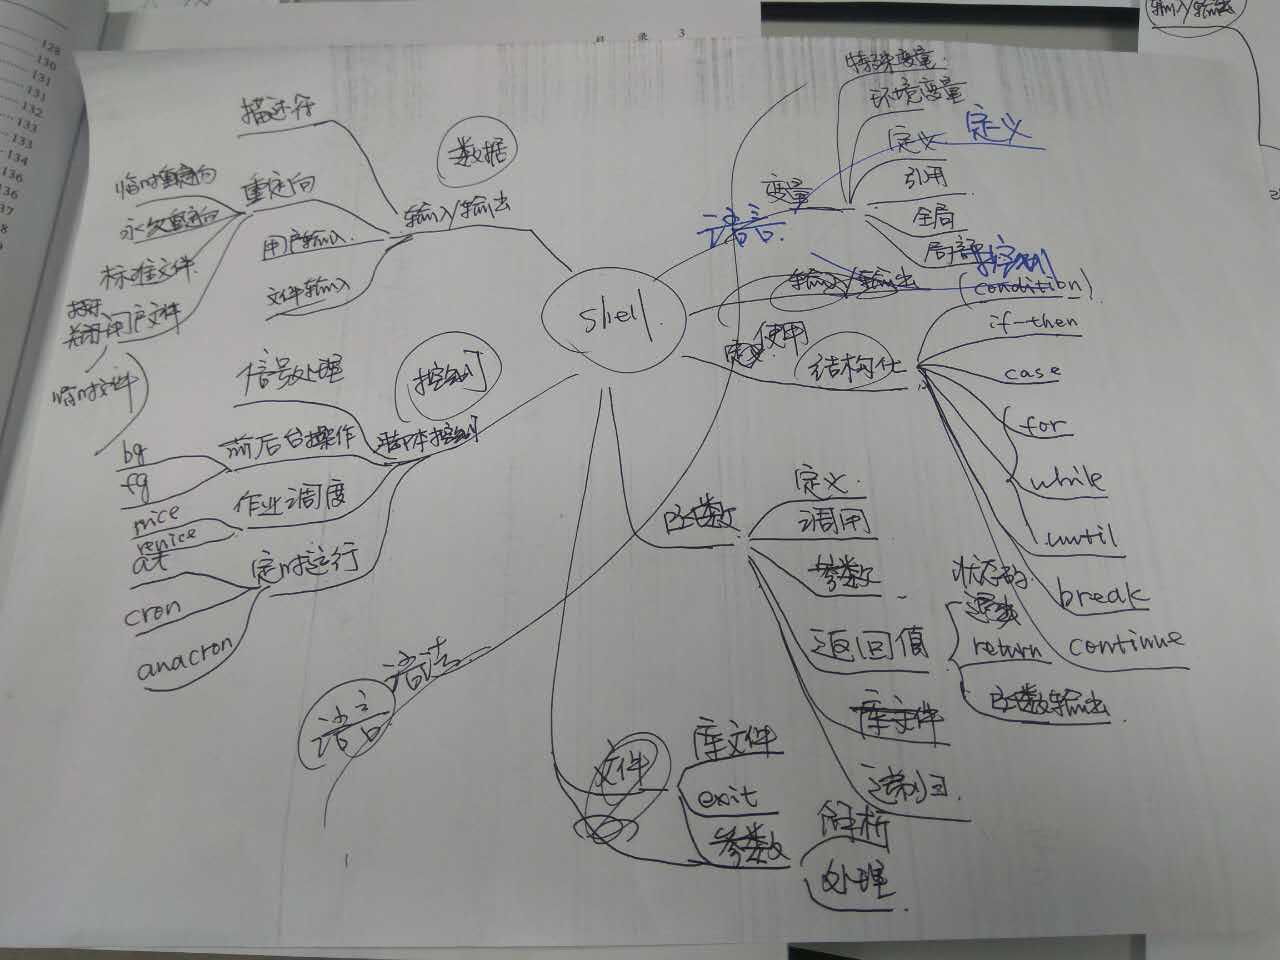 目 录 3
128
130
131
131
132
133
133
134
136
136
shell
数据
输入/输出
描述符
重定向
临时重定向
永久重定向
标准文件
用户文件
临时文件
用户输入
文件输入
控制
脚本控制
信号处理
前后台操作
bg
fg
作业调度
nice
renice
定时运行
at
cron
anacron
语法
语言
语言
变量
特殊变量
环境变量
定义
定义
引用
全局
局部
控制
输入/输出
定义
使用
结构化
(condition)
if-then
case
for
while
until
break
continue
函数
定义
调用
参数
返回值
状态码
return
函数输出
库文件
递归
文件
库文件
exit
参数
解析
处理
输入/输出